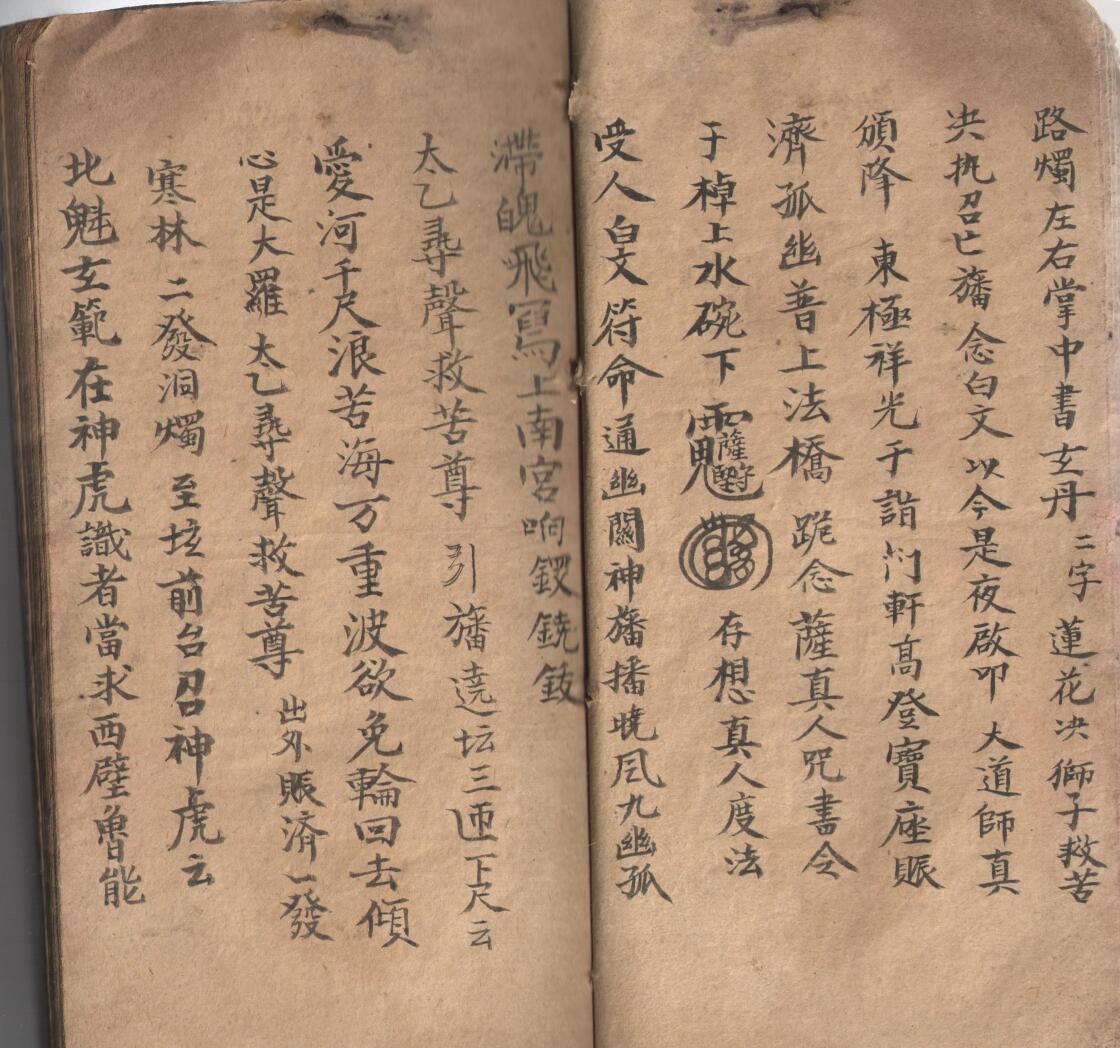 路燭左右掌中書玄丹二字蓮花决獅子救苦
决执召亡旛念白文以今是夜啟叩大道師真
頒降東極祥光千詣闩軒高登寶座賬
濟孤幽普上法橋跪念薩真人咒書令
于棹上水碗下存想真人度法
受人白文符命通幽關神旛播曉風九幽孤
滯魄飛冩上南宮响鑼鐃鈸
太乙尋聲救苦尊引旛遶坛三匝下尺云
愛河千尺浪苦海万重波欲免輪回去傾
心是大羅太乙尋聲救苦尊出外賬济一發
寒林二發洞燭至垓前台召神虎云
北魁玄範在神虎識者當求西壁魯能